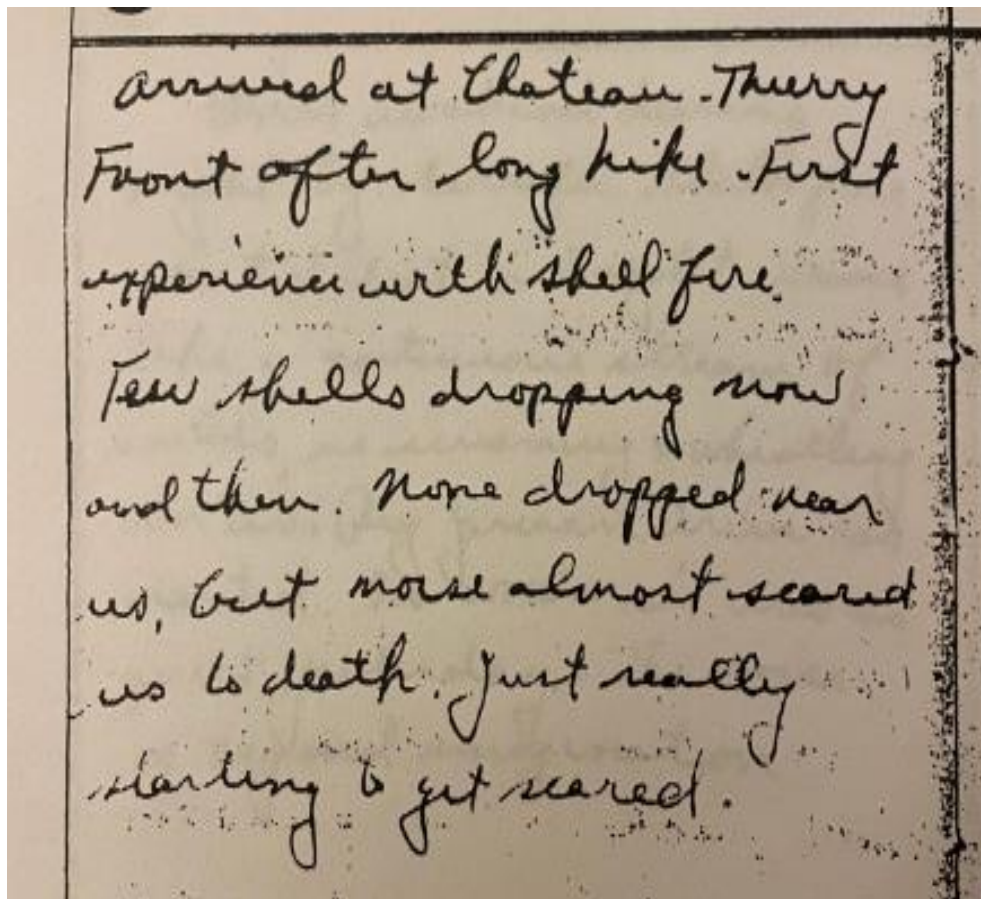 Arrived at Chateau-Thierry
Front after long hike. First
experience with shell fire.
Few shells dropping now
and then. None dropped near
us, but noise almost scared
us to death. Just really
starting to get scared.